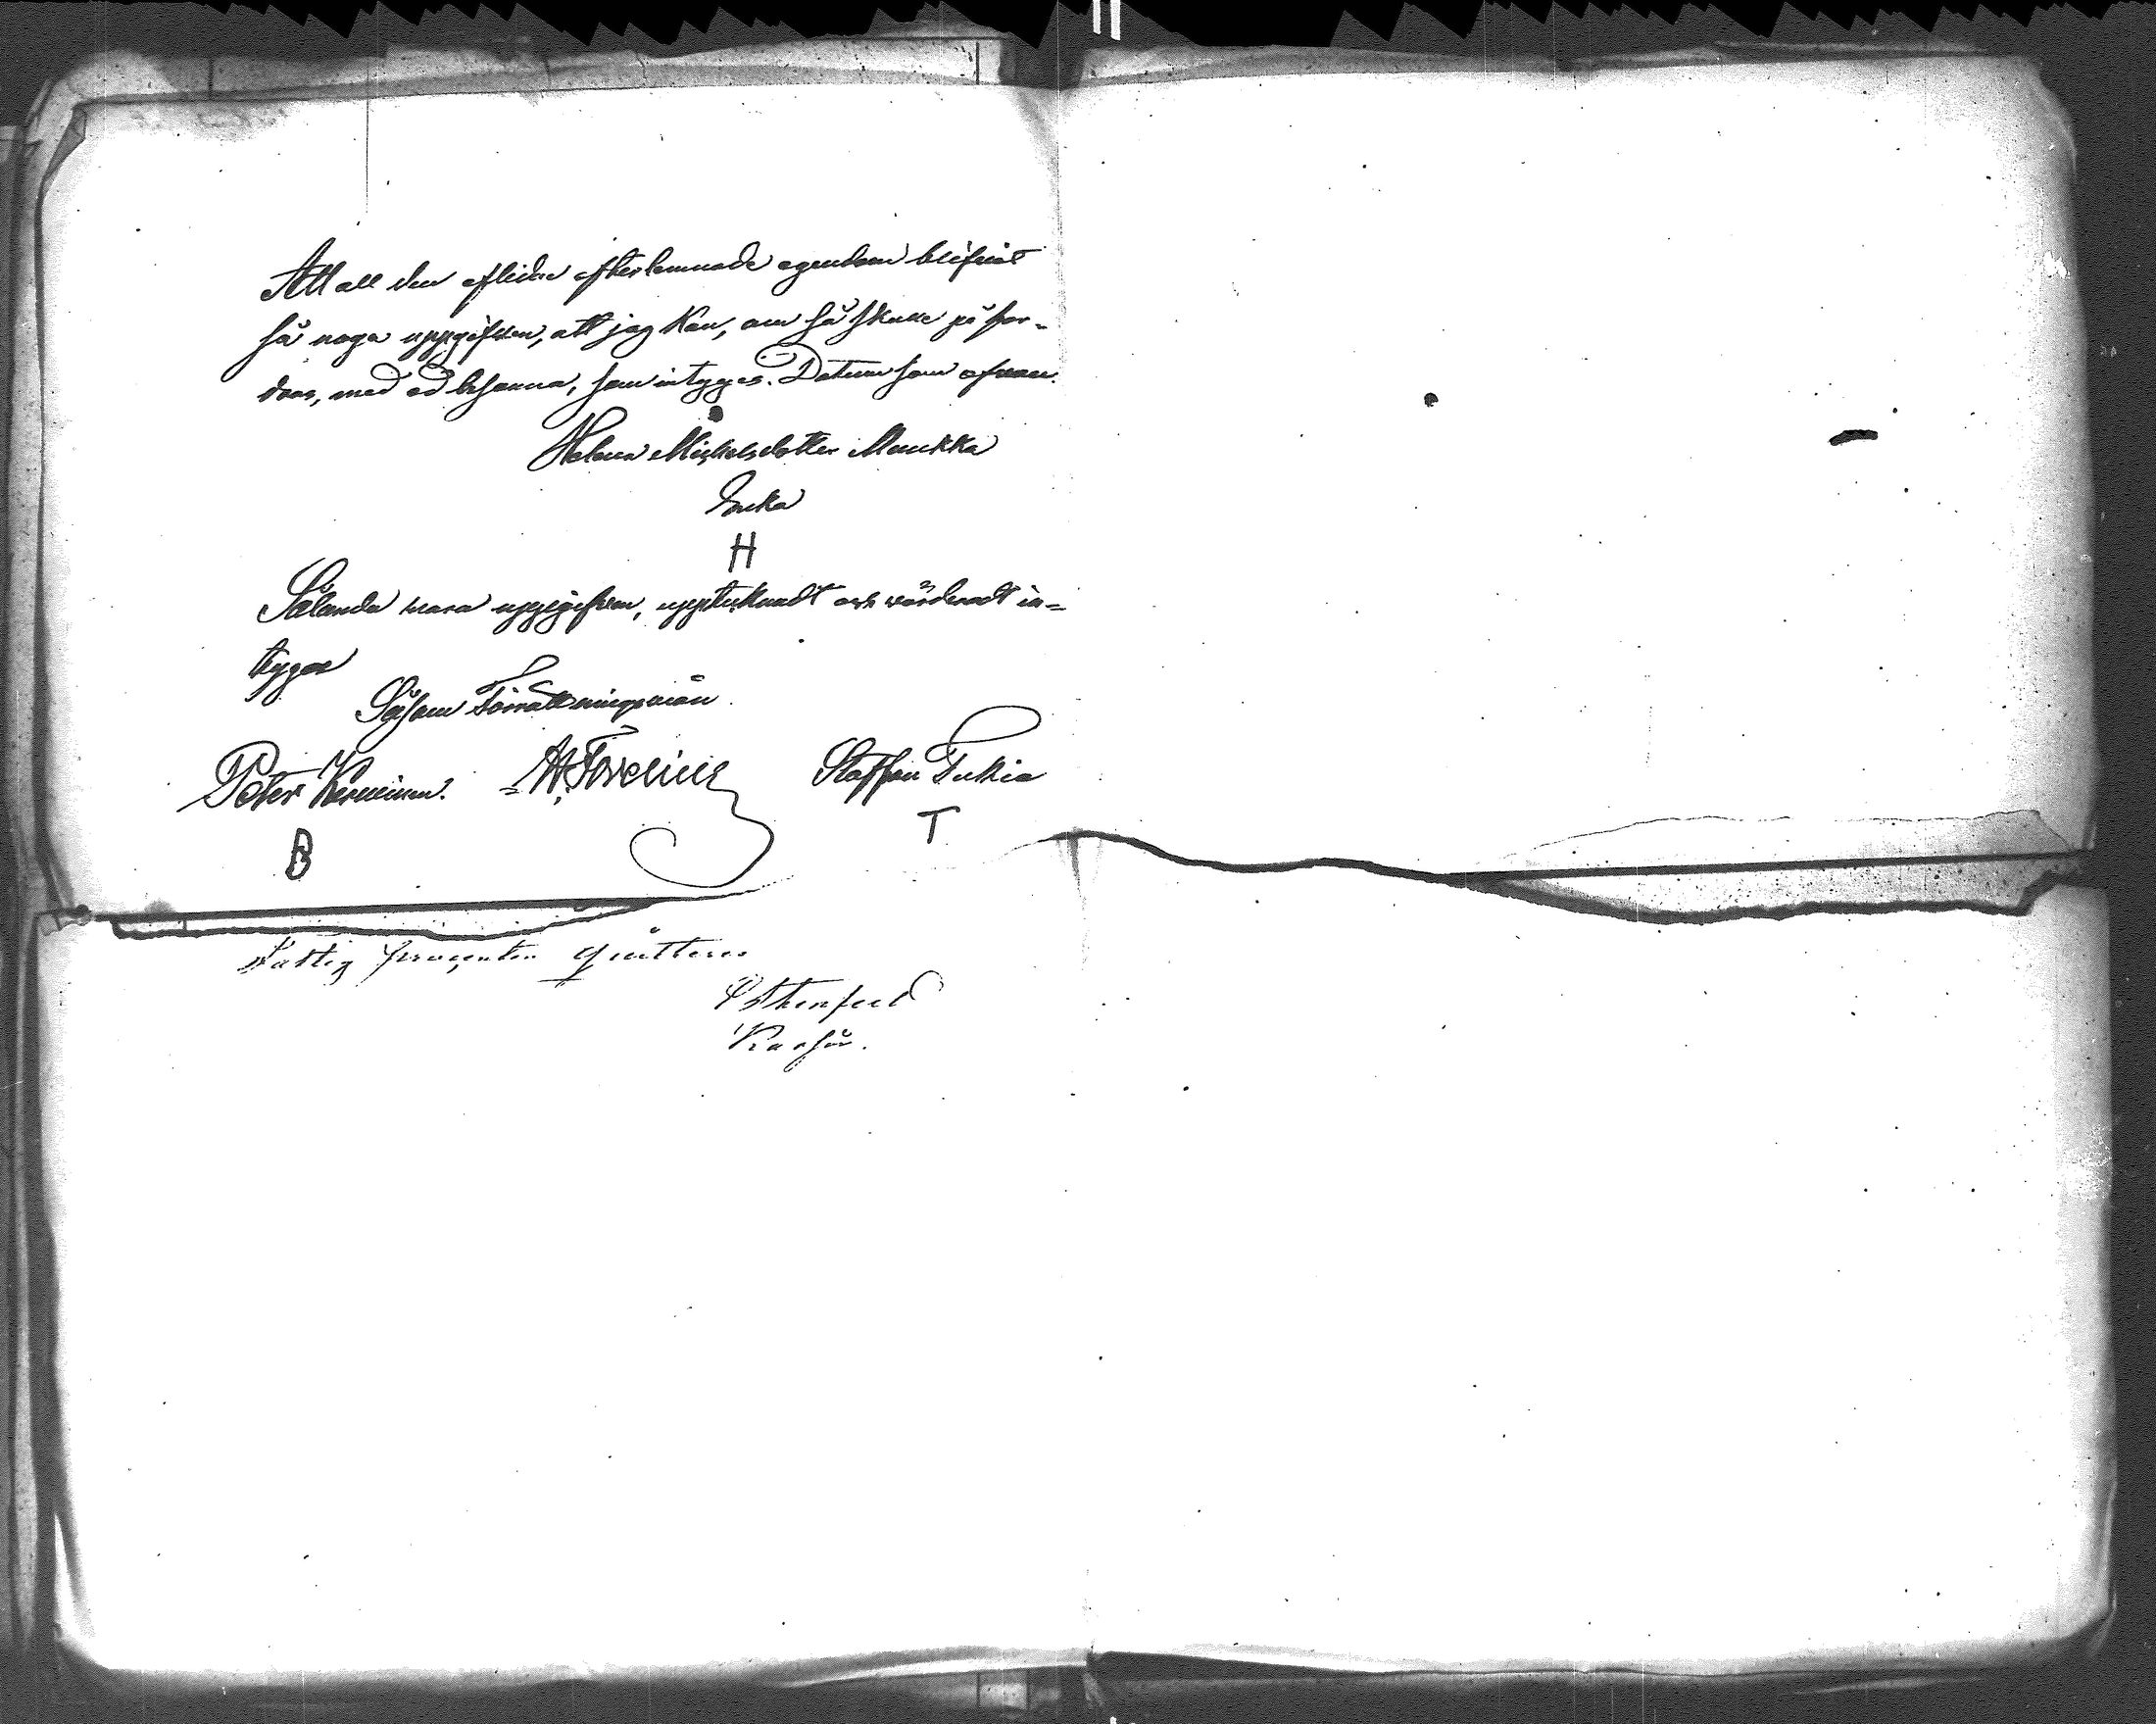 Att all den aflidne efterlemnade egendom blifvit
så noga uppgifven, att jag kan, om så skulle på for-
dras, med ed besanna, som intyges. Datum som ofvan.
Helena Michelsdotter Munkka
Enka
H
Sålunda vara uppgifven, upptecknadt och värderadt in-
tygar
Såsom Förrättningsmän
Peter Kerminen. Staffan Tukia
B T
Fattig procenten qvitteras